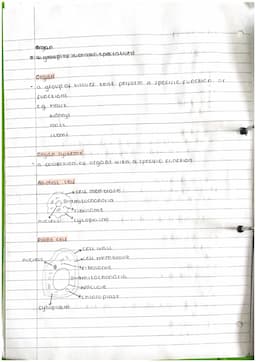 Organ
Organ
- a group of tissues that perform a specific function or
functions
e.g heart
kidney
root
stems
Organ systems
- a collection of organs with a specific function.
Animal cell
cell membrane
mitochondria
ribosome
nucleus
cytoplasm
Plant cell
cell wall
nucleus
cell membrane
ribosome
mitochondria
vacuole
chloroplast
cytoplasm